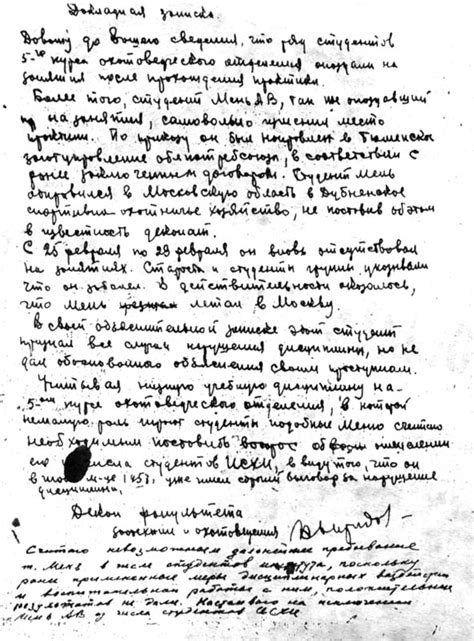 Докладная записка.
Довожу до Вашего сведения, что ряд студентов
5-го курса охотоведческого отделения опоздали на
занятия после прохождения практики.
Более того, студент Мень АВ, так же опоздавший
на занятия, самовольно изменил место
практики. По приказу он был направлен в Тюменское
заготуправление облпотребсоюза, в соответствии с
ранее заключенным договором. Студент Мень
отправился в Московскую область в Дубненское
охотничье хозяйство, не поставив об этом
в известность деканат.
С 25 февраля по 29 февраля он вновь отсутствовал
на занятиях. Староста и студенты группы указывали
что он заболел. В действительности оказалось,
что Мень летал в Москву.
В своей объяснительной записке этот студент
признал все случаи нарушения дисциплины, но не
дал обоснованного объяснения своим проступкам.
Учитывая низкую учебную дисциплину на
5-ом курсе охотоведческого отделения, в которой
немалую роль играют студенты подобные Меню считаю
необходимым поставить вопрос об исключении
его из числа студентов ИСХИ, в виду того, что он
в м-це 1957, уже имел строгий выговор за нарушение
дисциплины.
Декан факультета
зоотехнии и охотоведения
Считаю невозможным дальнейшее пребывание
т. Мень в числе студентов института, поскольку
ранее примененные меры дисциплинарных воздействий
и воспитательная работа с ним, положительных
результатов не дали. Настаиваю на исключении
Мень АВ из числа студентов ИСХИ